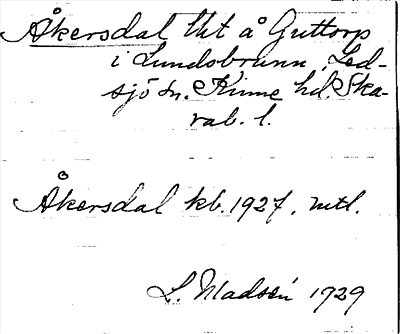 Åkersdal lht å Guttorp
i Lundsbrunn, Led-
sjö sn. Kinne hd. Ska-
rab. l.
Åkersdal kb. 1927. mtl.
L. Madsén 1929